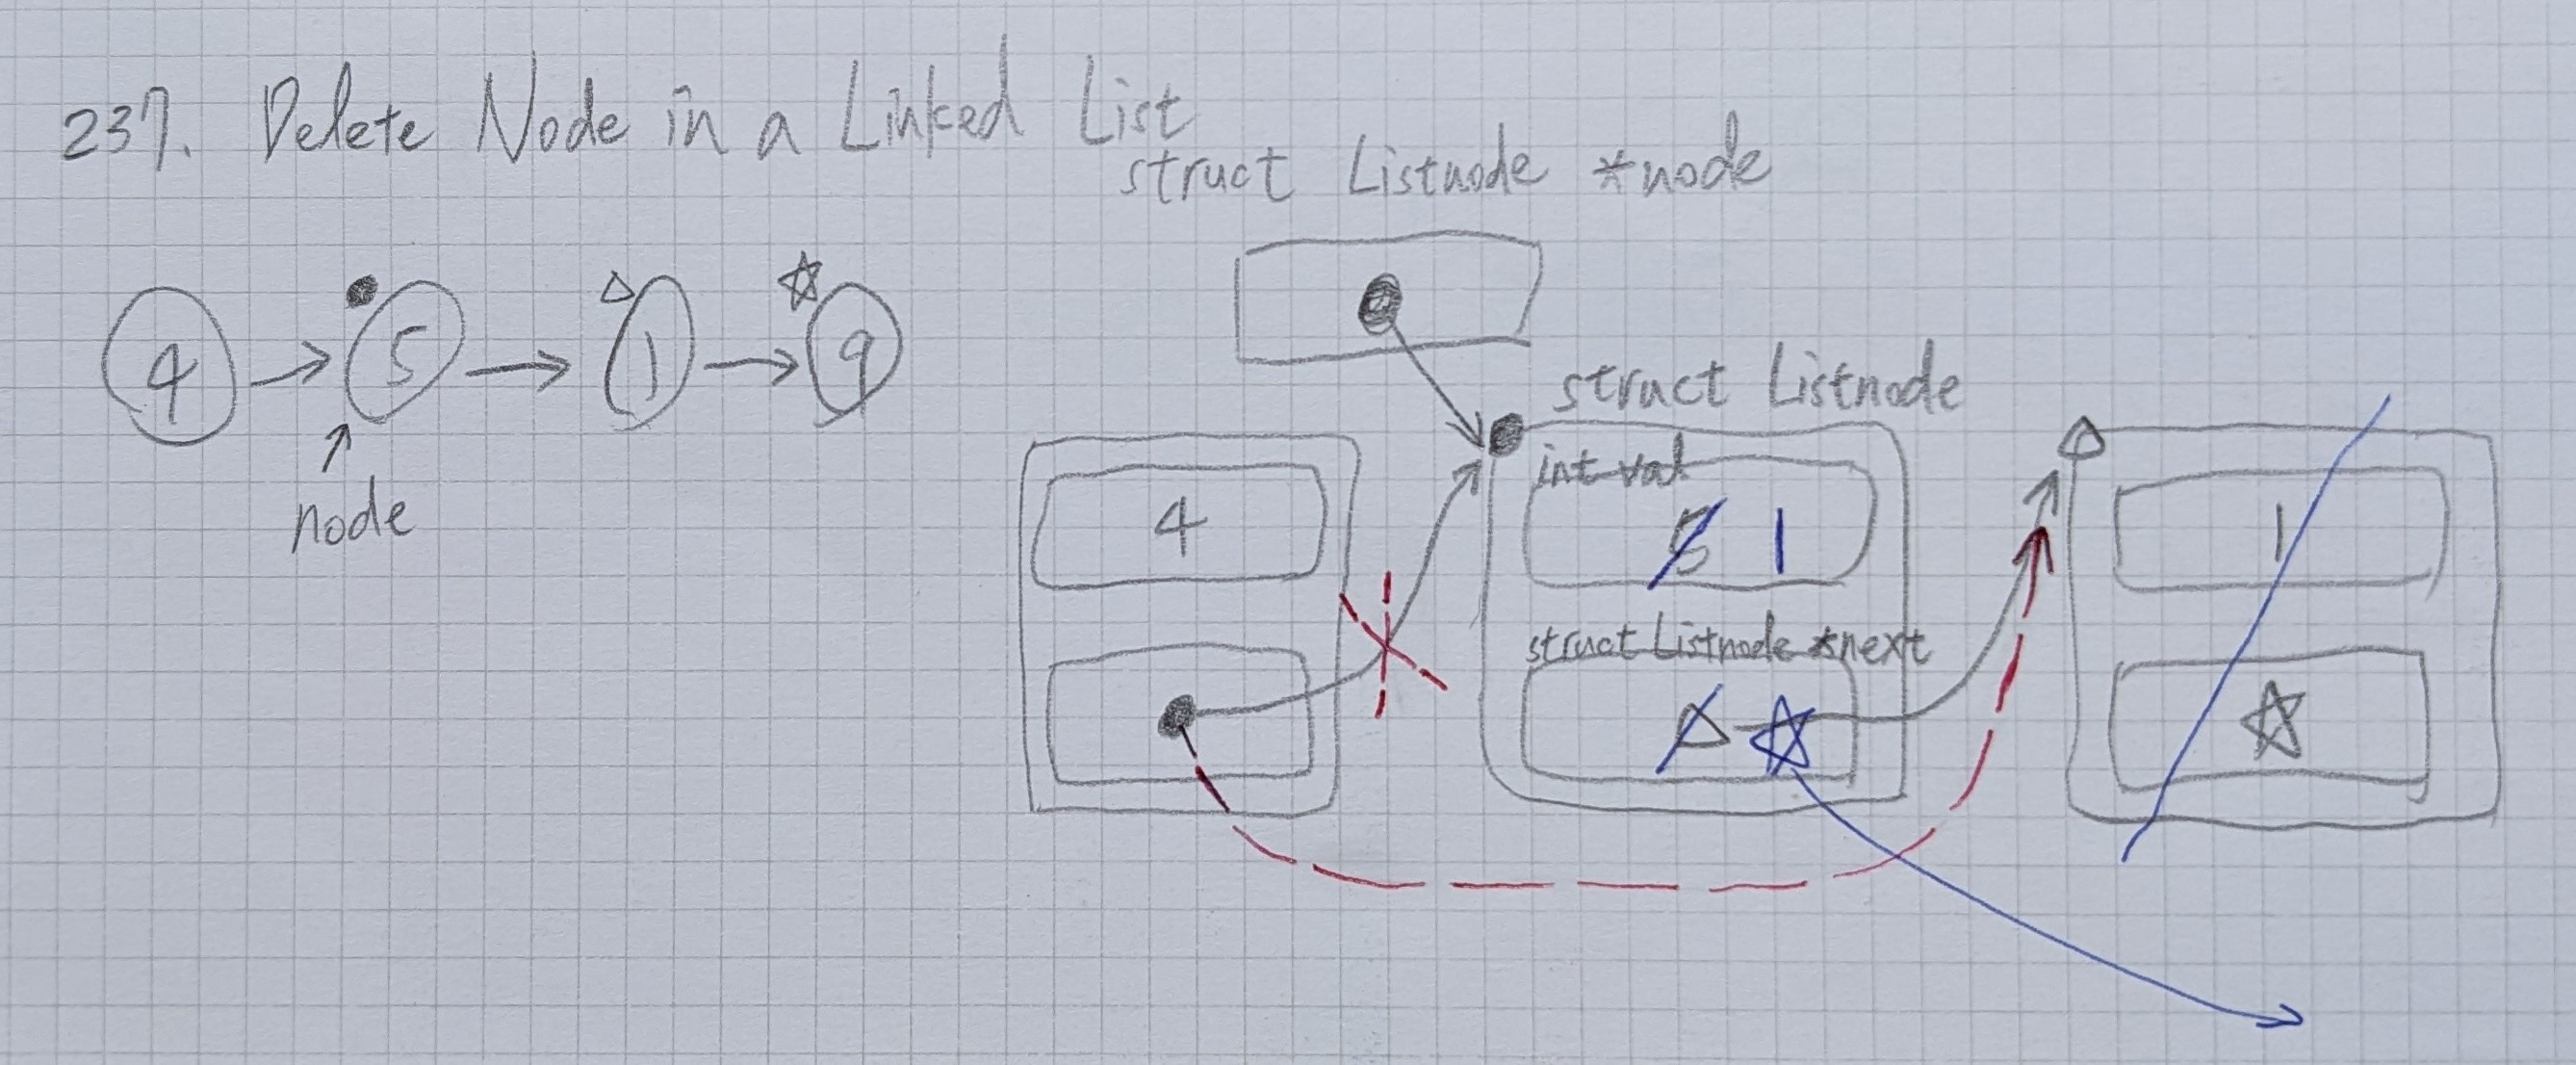 237. Delete Node in a Linked List
struct Listnode *node
4 → 5 → 1 → 9
↑
node
struct Listnode
int val
4
5 1
1
struct Listnode *next